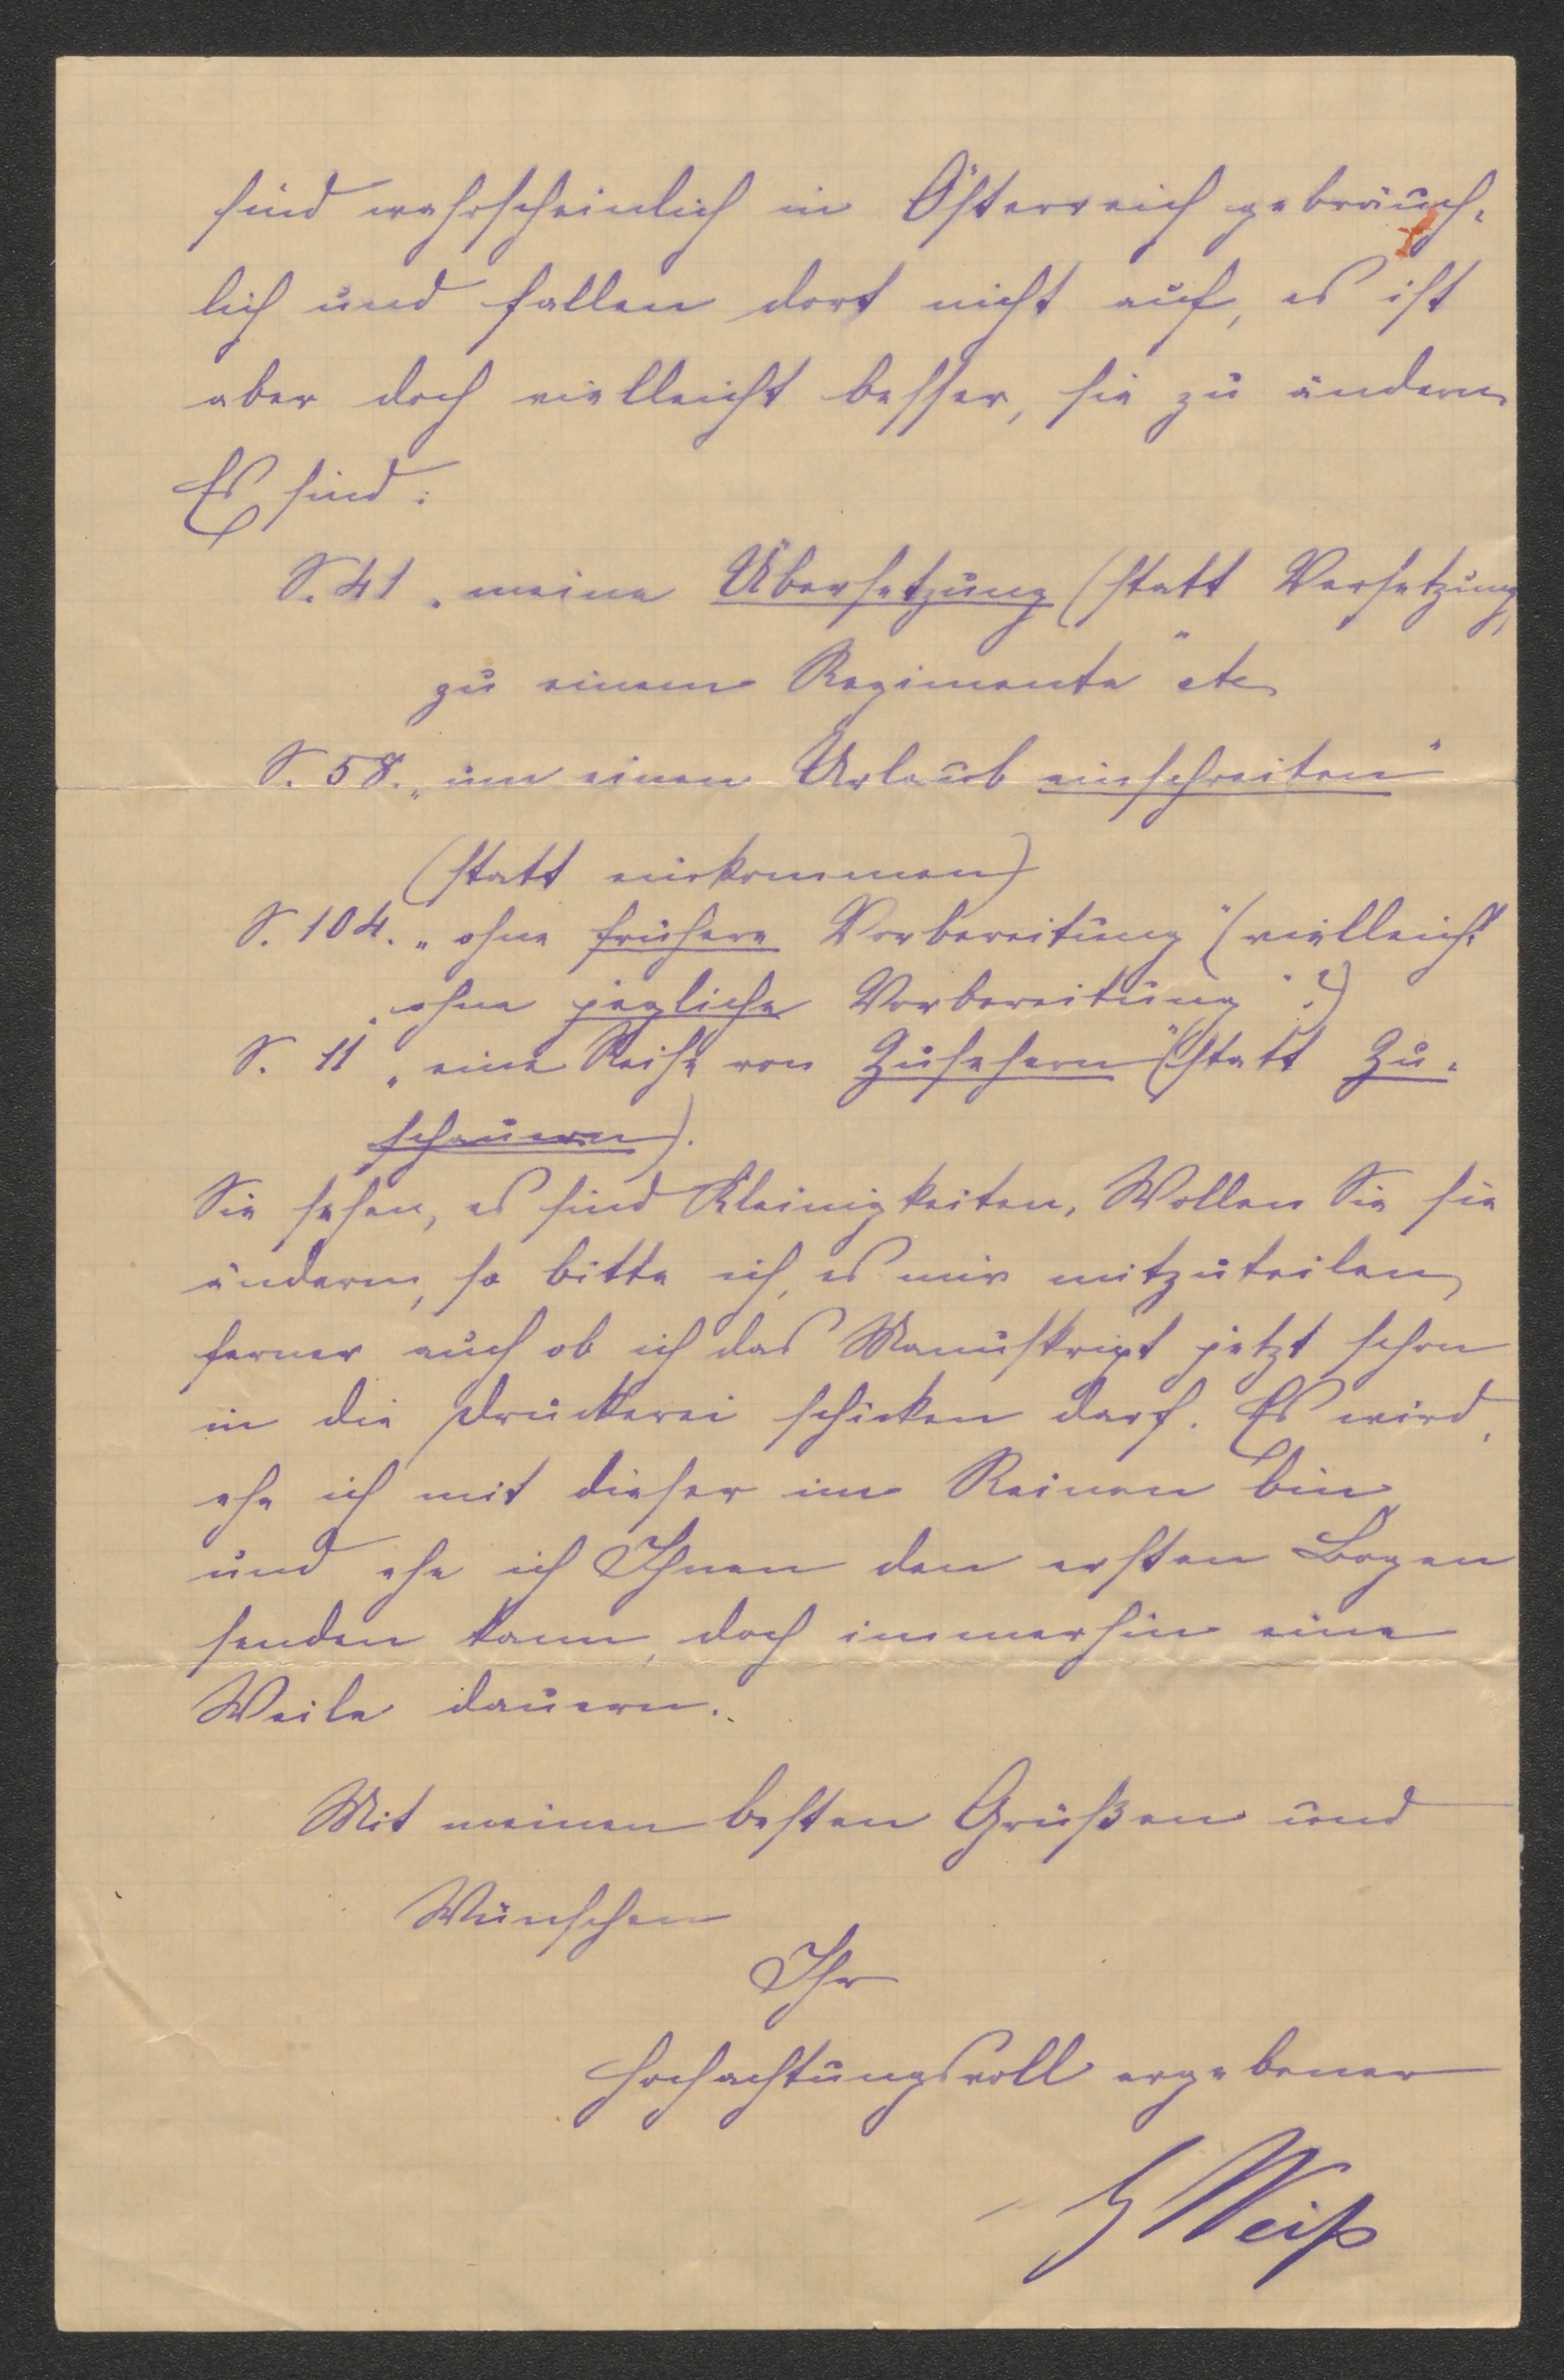 sind wahrscheinlich in Österreich gebräuch-
lich und fallen dort nicht auf, es ist
aber doch vielleicht besser, sie zu ändern.
Es sind:
S. 41 „meine Übersetzung (statt Versetzung)
zu einem Regimente" etc
S. 58. „um einen Urlaub einschreiten"
(statt einkommen)
S. 104. „ohne frühere Vorbereitung" (vielleicht
„ohne jegliche Vorbereitung"?)
S. 11 „eine Reihe von Zusehern" (statt Zu-
schauern).
Sie sehen, es sind Kleinigkeiten. Wollen Sie sie
ändern, so bitte ich, es mir mitzuteilen,
ferner auch ob ich das Manuskript jetzt schon
in die Druckerei schicken darf. Es wird,
ehe ich mit dieser im Reinen bin,
und ehe ich Ihnen den ersten Bogen
senden kann, doch immerhin eine
Weile dauern.
Mit meinen besten Grüßen und
Wünschen
Ihr
hochachtungsvoll ergebener
Weiß